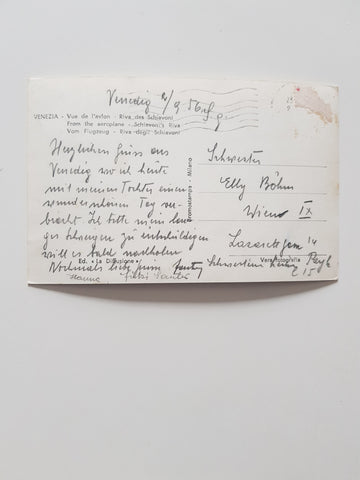 Venedig 2/9 56
VENEZIA - Vue de l'avion - Riva des Schiavoni
From the aeroplane - Schiavoni's Riva
Vom Flugzeug - Riva degli Schiavoni
Herzlichen Gruss aus
Venedig wo ich heute
mit meiner Tochter einen
wunderbaren Tag ver-
bracht. Ich bitte mein lan-
ges Schweigen zu entschuldigen
will es bald nachholen
Nochmals liebe Grüsse
Hanna
Ed. « La Diffusione »
Promostampa - Milano
Schwester
Elly Böhm
Wien IX
Lazarettgasse 14
Vera fotografia